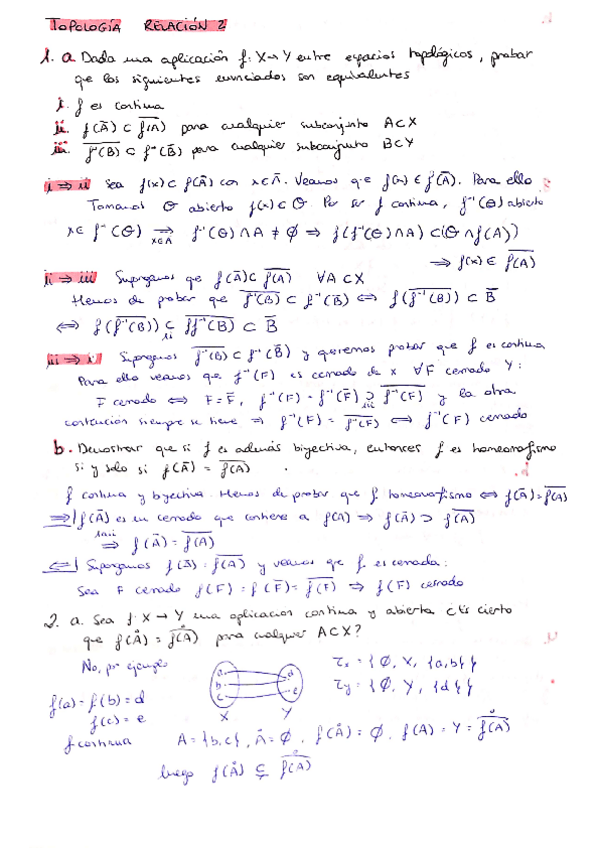 TOPOLOGÍA RELACIÓN 2
1. a. Dada una aplicación f: X→Y entre espacios topológicos, probar
que los siguientes enunciados son equivalentes
i. f es continua
ii. f(Ā) ⊂ \overline{f(A)} para cualquier subconjunto A⊂X
iii. \overline{f⁻¹(B)} ⊂ f⁻¹(B̄) para cualquier subconjunto B⊂Y
i ⇒ ii Sea f(x) ⊂ f(Ā) con x∈Ā. Veamos que f(x) ∈ \overline{f(A)}. Para ello
Tomamos Θ abierto f(x) ⊂ Θ. Por ser f continua, f⁻¹(Θ) abierto
x ∈ f⁻¹(Θ) ⇒_{x∈Ā} f⁻¹(Θ) ∩ A ≠ ∅ ⇒ f(f⁻¹(Θ) ∩ A) ⊂ (Θ ∩ f(A))
⇒ f(x) ∈ \overline{f(A)}
ii ⇒ iii Supongamos que f(Ā) ⊂ \overline{f(A)} ∀A ⊂ X
Hemos de probar que \overline{f⁻¹(B)} ⊂ f⁻¹(B̄) ⇔ f(\overline{f⁻¹(B)}) ⊂ B̄
⇔ f(\overline{f⁻¹(B)}) ⊂_{ii} \overline{ff⁻¹(B)} ⊂ B̄
iii ⇒ i Supongamos \overline{f⁻¹(B)} ⊂ f⁻¹(B̄) y queremos probar que f es continua
Para ello veamos que f⁻¹(F) es cerrado de x ∀F cerrado Y:
F cerrado ⇔ F = F̄, f⁻¹(F) = f⁻¹(F̄) ⊃_{iii} \overline{f⁻¹(F)} y la otra
contención siempre se tiene ⇒ f⁻¹(F) = \overline{f⁻¹(F)} ⇔ f⁻¹(F) cerrado
b. Demostrar que si f es además biyectiva, entonces f es homeomorfismo
si y solo si f(Ā) = \overline{f(A)}.
f continua y biyectiva. Hemos de probar que f homeomorfismo ⇔ f(Ā) = \overline{f(A)}
⇒| f(Ā) es un cerrado que contiene a f(A) ⇒ f(Ā) ⊃ \overline{f(A)}
⇒ f(Ā) = \overline{f(A)}
⇐| Supongamos f(Ā) = \overline{f(A)} y veamos que f es cerrada:
Sea F cerrado f(F) = f(F̄) = \overline{f(F)} ⇒ f(F) cerrado
2. a. Sea f: X→Y una aplicación continua y abierta ¿Es cierto
que f(Å) = \mathring{f(A)} para cualquier A⊂X?
No, por ejemplo
a b c
X
d e
Y
τx = {∅, X, {a,b}}
τy = {∅, Y, {d}}
f(a) = f(b) = d
f(c) = e
f continua A = {b,c}, Å = ∅, f(Å) = ∅, f(A) = Y = \mathring{f(A)}
luego f(Å) ⊊ \mathring{f(A)}